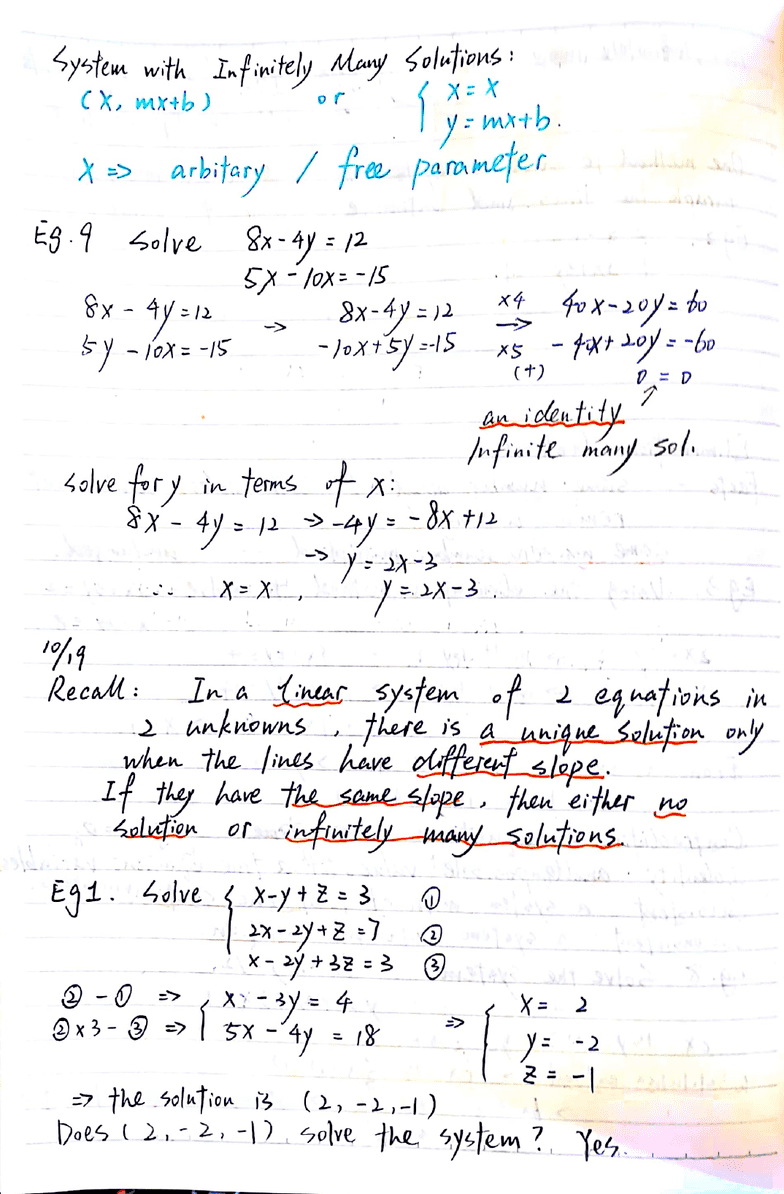 System with Infinitely Many Solutions:
(x, mx+b) or { x = x
y = mx+b.
x => arbitary / free parameter
Eg.9 Solve 8x - 4y = 12
5x - 10x = -15
8x - 4y = 12 -> 8x - 4y = 12 x4 -> 40x - 20y = 60
5y - 10x = -15 -10x + 5y = -15 x5 -40x + 20y = -60
(+) 0 = 0
an identity ↗
Infinite many sol.
solve for y in terms of x:
8x - 4y = 12 -> -4y = -8x + 12
-> y = 2x - 3
∴ x = x, y = 2x - 3.
10/19
Recall: In a linear system of 2 equations in
2 unknowns, there is a unique solution only
when the lines have different slope.
If they have the same slope, then either no
solution or infinitely many solutions.
Eg1. Solve { x - y + z = 3 ①
2x - 2y + z = 7 ②
x - 2y + 3z = 3 ③
② - ① => { x - 3y = 4 => { x = 2
② x 3 - ③ => 5x - 4y = 18 y = -2
z = -1
=> the solution is (2, -2, -1)
Does (2, -2, -1) solve the system? Yes.